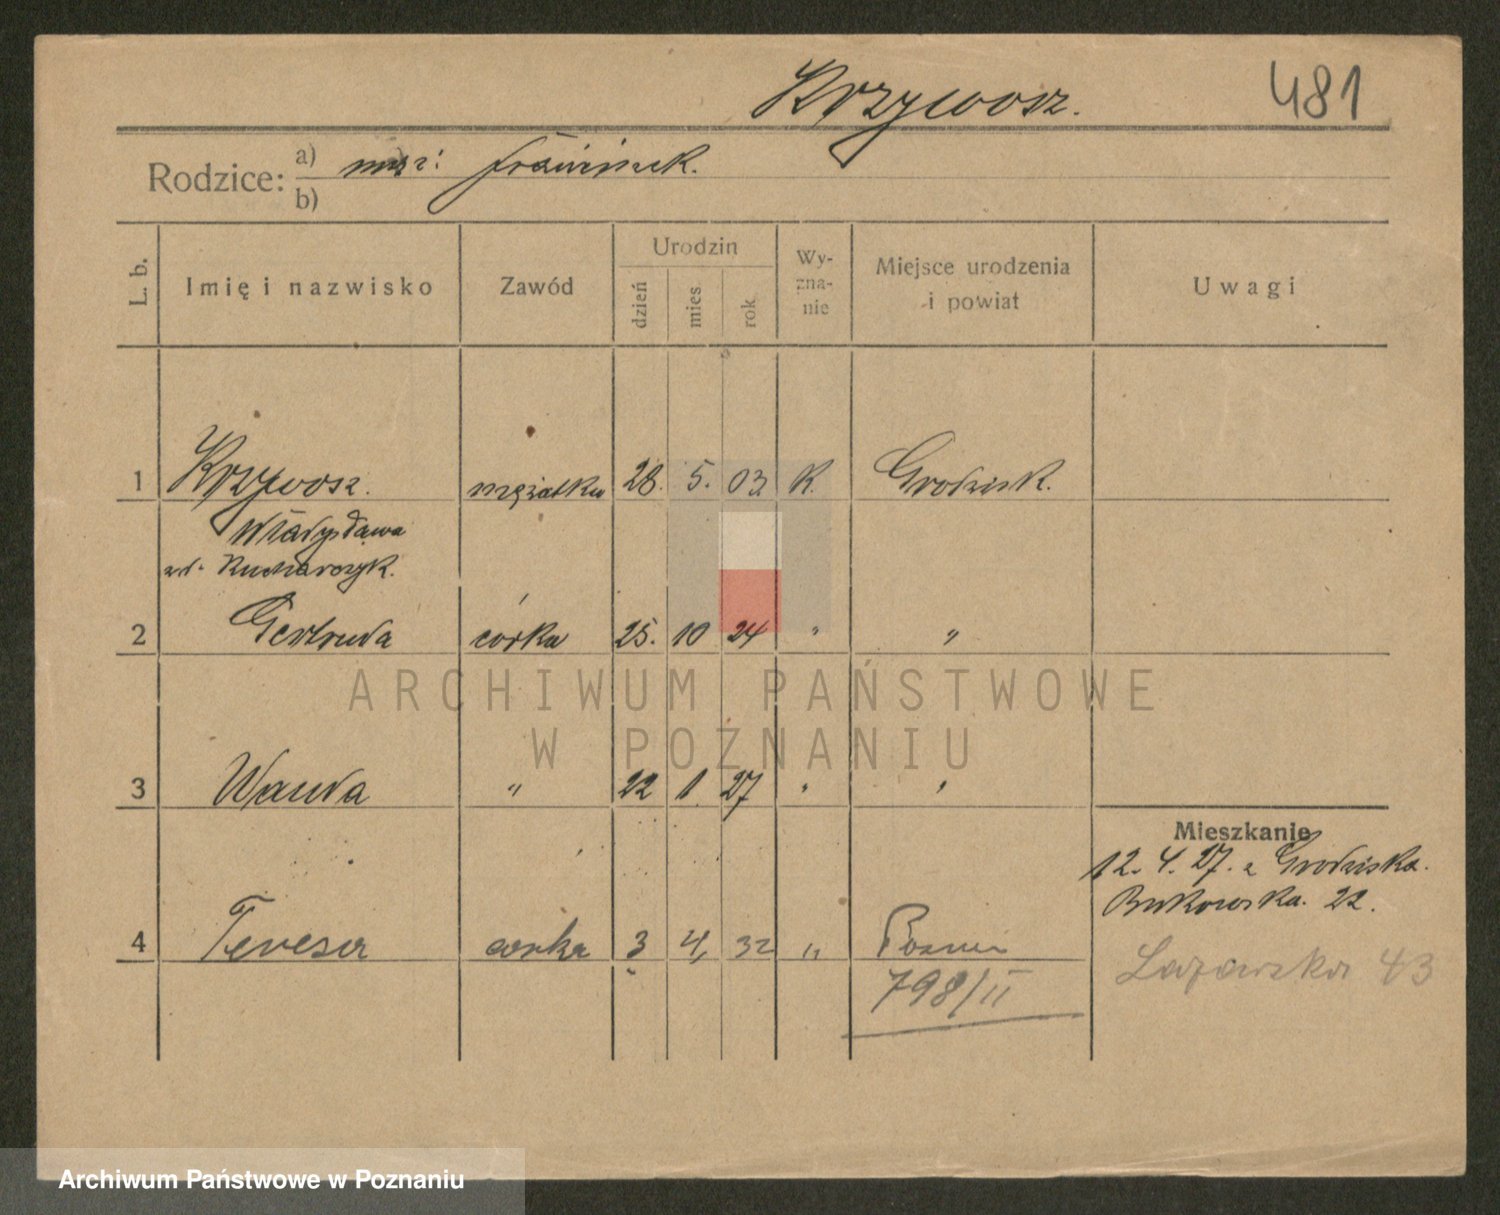 Krzywosz. 481
Rodzice: a) mąż: Franciszek.
b)
L. b. Imię i nazwisko Zawód Urodzin dzień mies rok Wy-zna-nie Miejsce urodzenia i powiat Uwagi
1 Krzywosz. mężatka 28. 5. 03. K. Grodzisk.
Władysława
zd. Kucharczyk.
2 Gertruda córka 25. 10 24 " "
ARCHIWUM PAŃSTWOWE
W POZNANIU
3 Wanda " 22 1. 27 " "
Mieszkanie
12. 4. 27. z Grodziska.
Bukowska. 22.
4 Teresa córka 3 4, 32 " Poznań
Łazarska 43
798/II
Archiwum Państwowe w Poznaniu